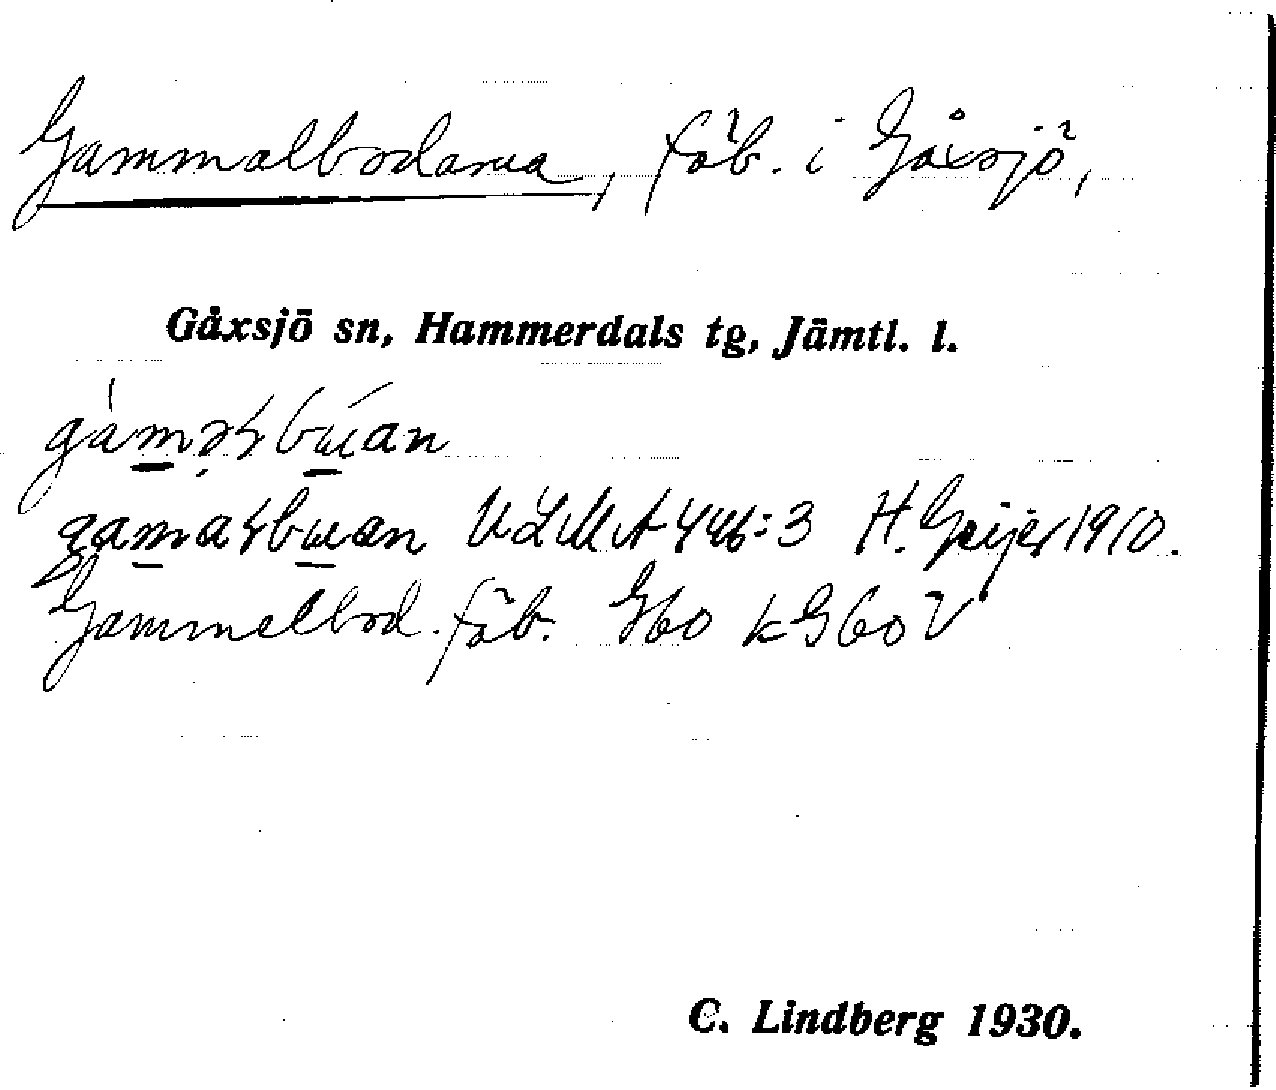 Gammalbodarna, fäb. i Gåxsjö,
Gåxsjö sn, Hammerdals tg, Jämtl. l.
ULMA 446:3 H. Geijer 1910.
Gammelbod. fäb. Gbo k G 60 V
C. Lindberg 1930.